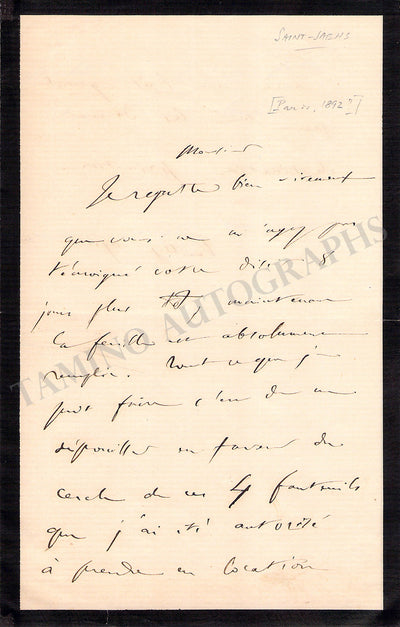 SAINT-SAENS
[Paris, 1892?]
Monsieur
Je regrette bien vivement
que vous ne m'ayez pas
témoigné votre désir 8
jours plus tôt maintenant
la feuille est absolument
remplie. Tout ce que je
puis faire c'est de me
dépouiller en faveur du
cercle de ces 4 fauteuils
que j'ai été autorisé
à prendre en location
TAMINO AUTOGRAPHS